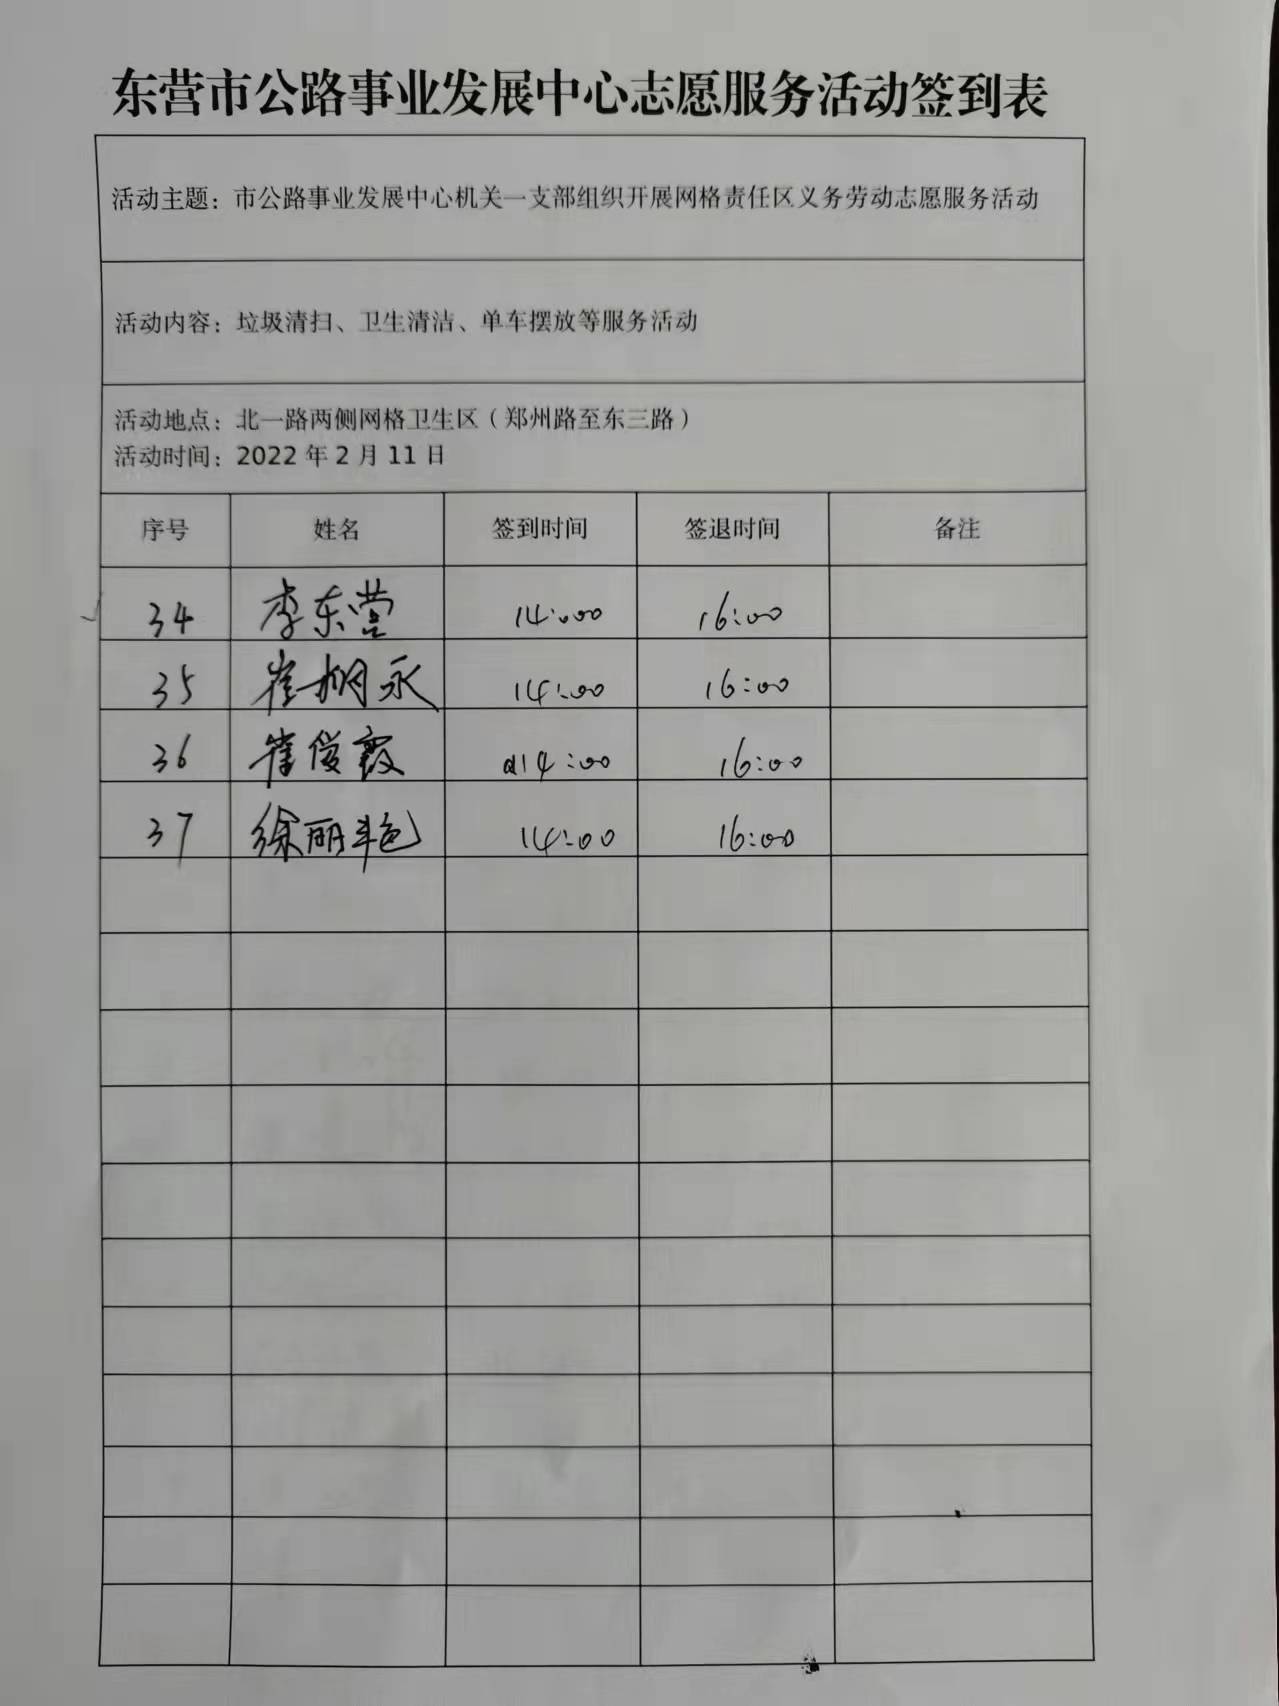 东营市公路事业发展中心志愿服务活动签到表
活动主题：市公路事业发展中心机关一支部组织开展网格责任区义务劳动志愿服务活动
活动内容：垃圾清扫、卫生清洁、单车摆放等服务活动
活动地点：北一路两侧网格卫生区（郑州路至东三路）
活动时间：2022 年 2 月 11 日
序号 姓名 签到时间 签退时间 备注
34 李东营 14:00 16:00
35 崔永 14:00 16:00
36 崔俊霞 14:00 16:00
37 徐丽艳 14:00 16:00